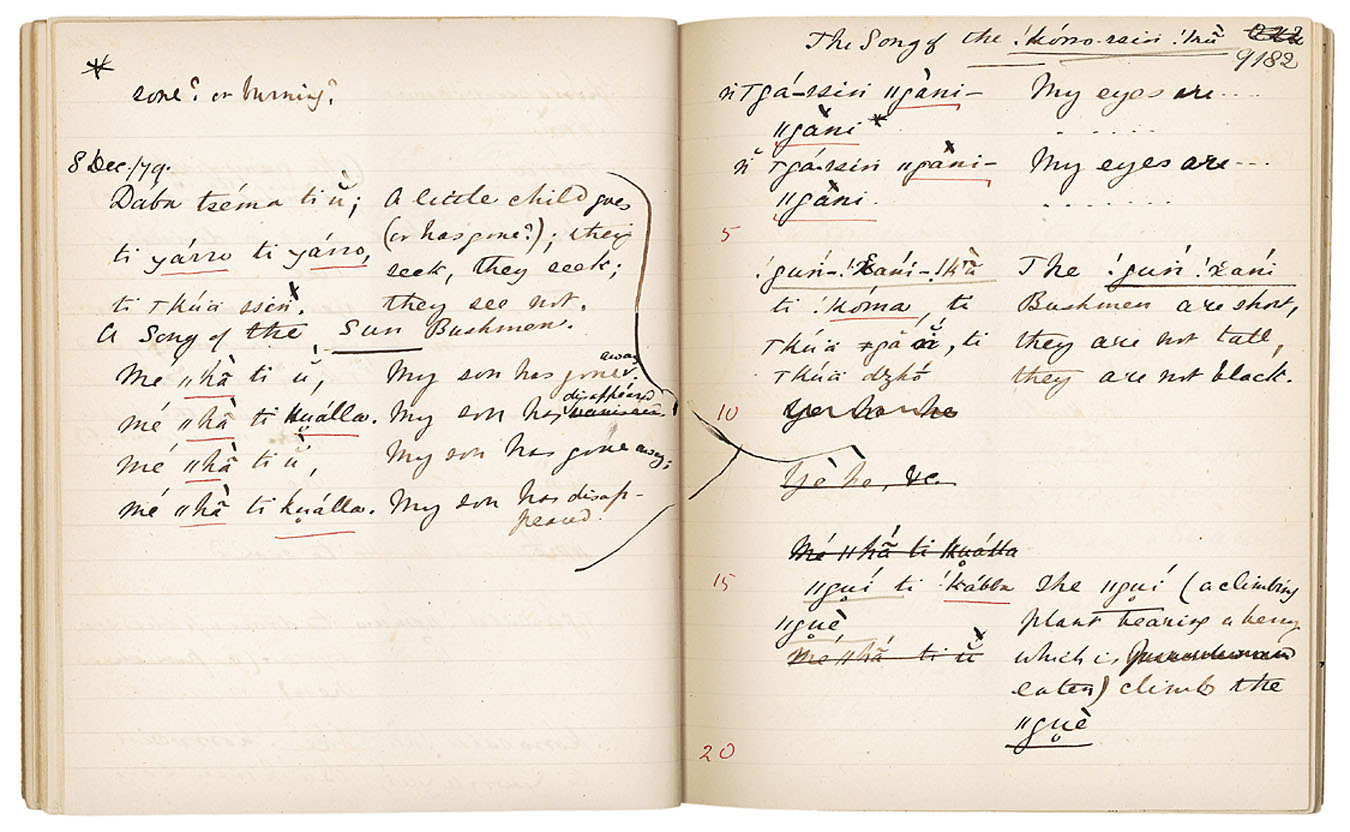 *
sore? or burning?
8 Dec./79.
Dába tséma ti ŭ̀; A little child goes
(or has gone?); they
ti yárro ti yárro, seek, they seek;
ti ткúа ssiń. they see not.
A Song of the Sun Bushmen.
Mé ǁhã̀ ti ŭ̀, My son has gone away.
mé ǁhã̀ ti kuálla. My son has disappeared
Mé ǁhã̀ ti ŭ̀, My son has gone away;
mé ǁhã̀ ti kuálla. My son has disap-
peared.
The Song of the !kórro-ssin !kũ̀
9182
ń тgá-ssin ǁgàni- My eyes are ....
ǁgàni* . . . . . .
ń тgá-ssin ǁgàni- My eyes are ...
ǁgàni. . . . . . . .
5
The !guń !χáni
ti !kóma, ti Bushmen are short,
they are not tall,
ткúа dzhó they are not black.
10
Yè he, &c.
Mé ǁhã̀ ti kuálla
15
ǁguí ti !kábba The ǁguí (a climbing
ǁguè plant bearing a berry
Mé ǁhã̀ ti ŭ̀ which is
eaten) climbs the
ǁguè
20